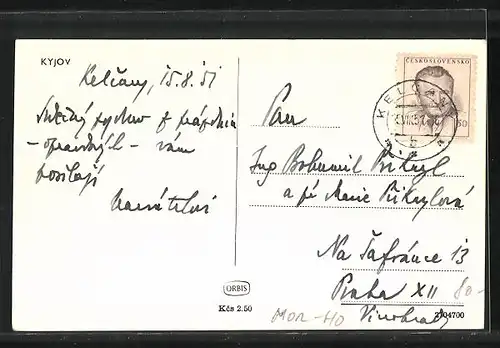 KYJOV
Kelčany, 15.8.51
Srdečný pozdrav z prázdnin
- opravdových - vám
posílají
ČESKOSLOVENSKO
KELČANY
b
Pan
Ing Bohumil Přikryl
a pí Marie Přikrylová
Na Šafránce 13
Praha XII 80-
Vinohrady
ORBIS
Kčs 2.50
MOR-HO
2104700